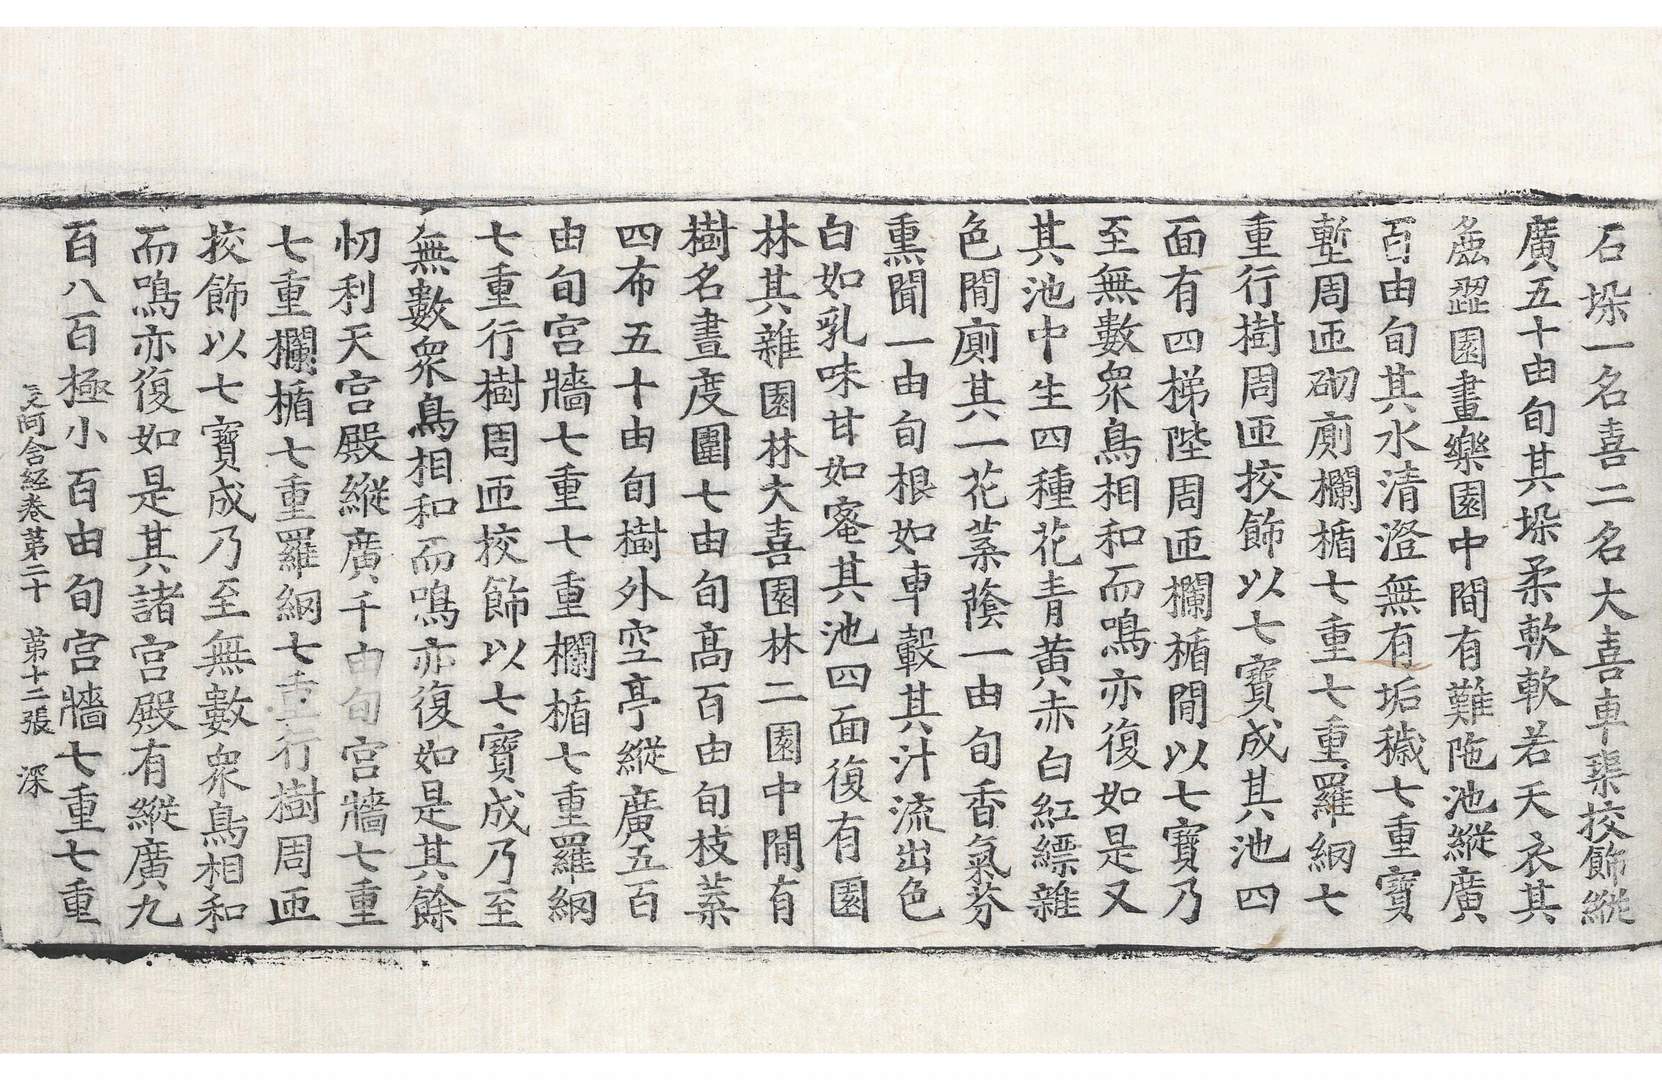 石垜一名喜二名大喜車渠挍飾縱
廣五十由旬其垜柔軟軟若天衣其
麁澀園畫樂園中間有難陁池縱廣
百由旬其水清澄無有垢穢七重寶
塹周匝砌廁欄楯七重七重羅網七
重行樹周匝挍飾以七寶成其池四
面有四梯陛周匝欄楯間以七寶乃
至無數衆鳥相和而鳴亦復如是又
其池中生四種花青黃赤白紅縹雜
色間廁其一花葉蔭一由旬香氣芬
熏聞一由旬根如車轂其汁流出色
白如乳味甘如蜜其池四面復有園
林其雜園林大喜園林二園中間有
樹名晝度圍七由旬高百由旬枝葉
四布五十由旬樹外空亭縱廣五百
由旬宮牆七重七重欄楯七重羅網
七重行樹周匝挍飾以七寶成乃至
無數衆鳥相和而鳴亦復如是其餘
忉利天宮殿縱廣千由旬宮牆七重
七重欄楯七重羅網七重行樹周匝
挍飾以七寶成乃至無數衆鳥相和
而鳴亦復如是其諸宮殿有縱廣九
百八百極小百由旬宮牆七重七重
長阿含經卷第二十　第十二張　深